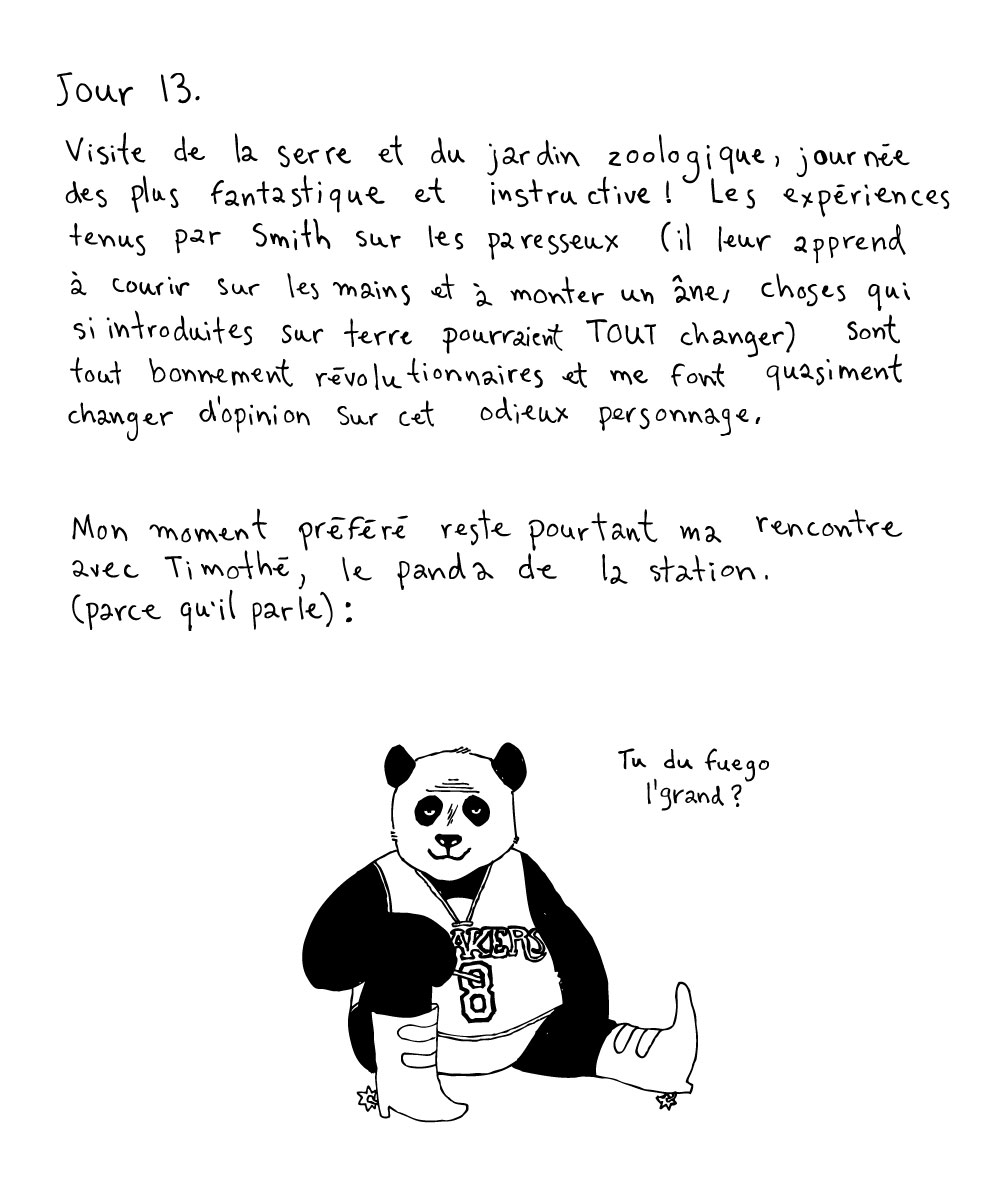 Jour 13.
Visite de la serre et du jardin zoologique, journée
des plus fantastique et instructive ! Les expériences
tenus par Smith sur les paresseux (il leur apprend
à courir sur les mains et à monter un âne, choses qui
si introduites sur terre pourraient TOUT changer) sont
tout bonnement révolutionnaires et me font quasiment
changer d'opinion sur cet odieux personnage.
Mon moment préféré reste pourtant ma rencontre
avec Timothé, le panda de la station.
(parce qu'il parle) :
Tu du fuego
l'grand ?
AKERS
8